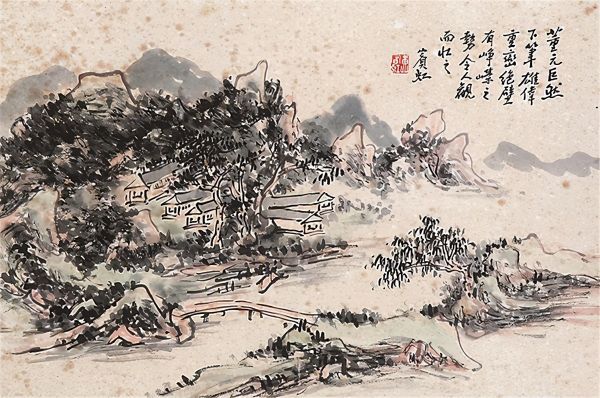 董元巨然
下筆雄偉
重巒絕壁
有崢嶸之
勢令人觀
而壯之
賓虹